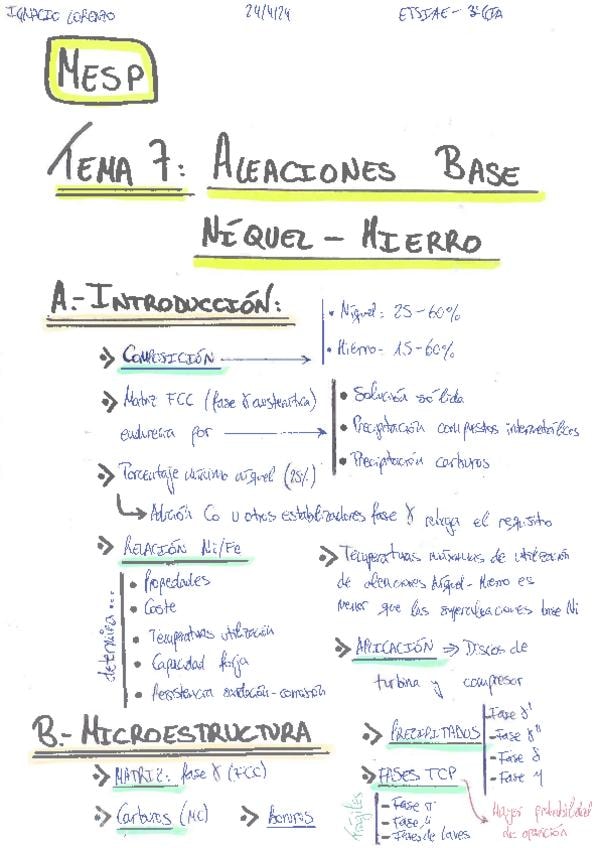 IGNACIO LORENZO
24/4/24
ETSIAE - 3º CTA
MESP
TEMA 7: ALEACIONES BASE
NÍQUEL - HIERRO
A.- INTRODUCCIÓN:
COMPOSICIÓN
• Níquel: 25-60%
• Hierro: 15-60%
Matriz FCC (fase γ austenítica)
endurecida por
• Solución sólida
• Precipitación compuestos intermetálicos
• Precipitación carburos
Porcentaje mínimo níquel (25%)
Adición Co u otros estabilizadores fase γ relaja el requisito
RELACIÓN Ni/Fe
determina...
• Propiedades
• Coste
• Temperaturas utilización
• Capacidad forja
• Resistencia oxidación-corrosión
Temperaturas máximas de utilización
de aleaciones Níquel-Hierro es
menor que las superaleaciones base Ni
APLICACIÓN ⇒ Discos de
turbina y compresor
B.- MICROESTRUCTURA
MATRIZ: fase γ (FCC)
Carburos (MC)
Boruros
PRECIPITADOS
- Fase γ'
- Fase γ''
- Fase δ
- Fase η
FASES TCP
frágiles
- Fase σ
- Fase μ
- Fases de Laves
Mayor probabilidad
de aparición